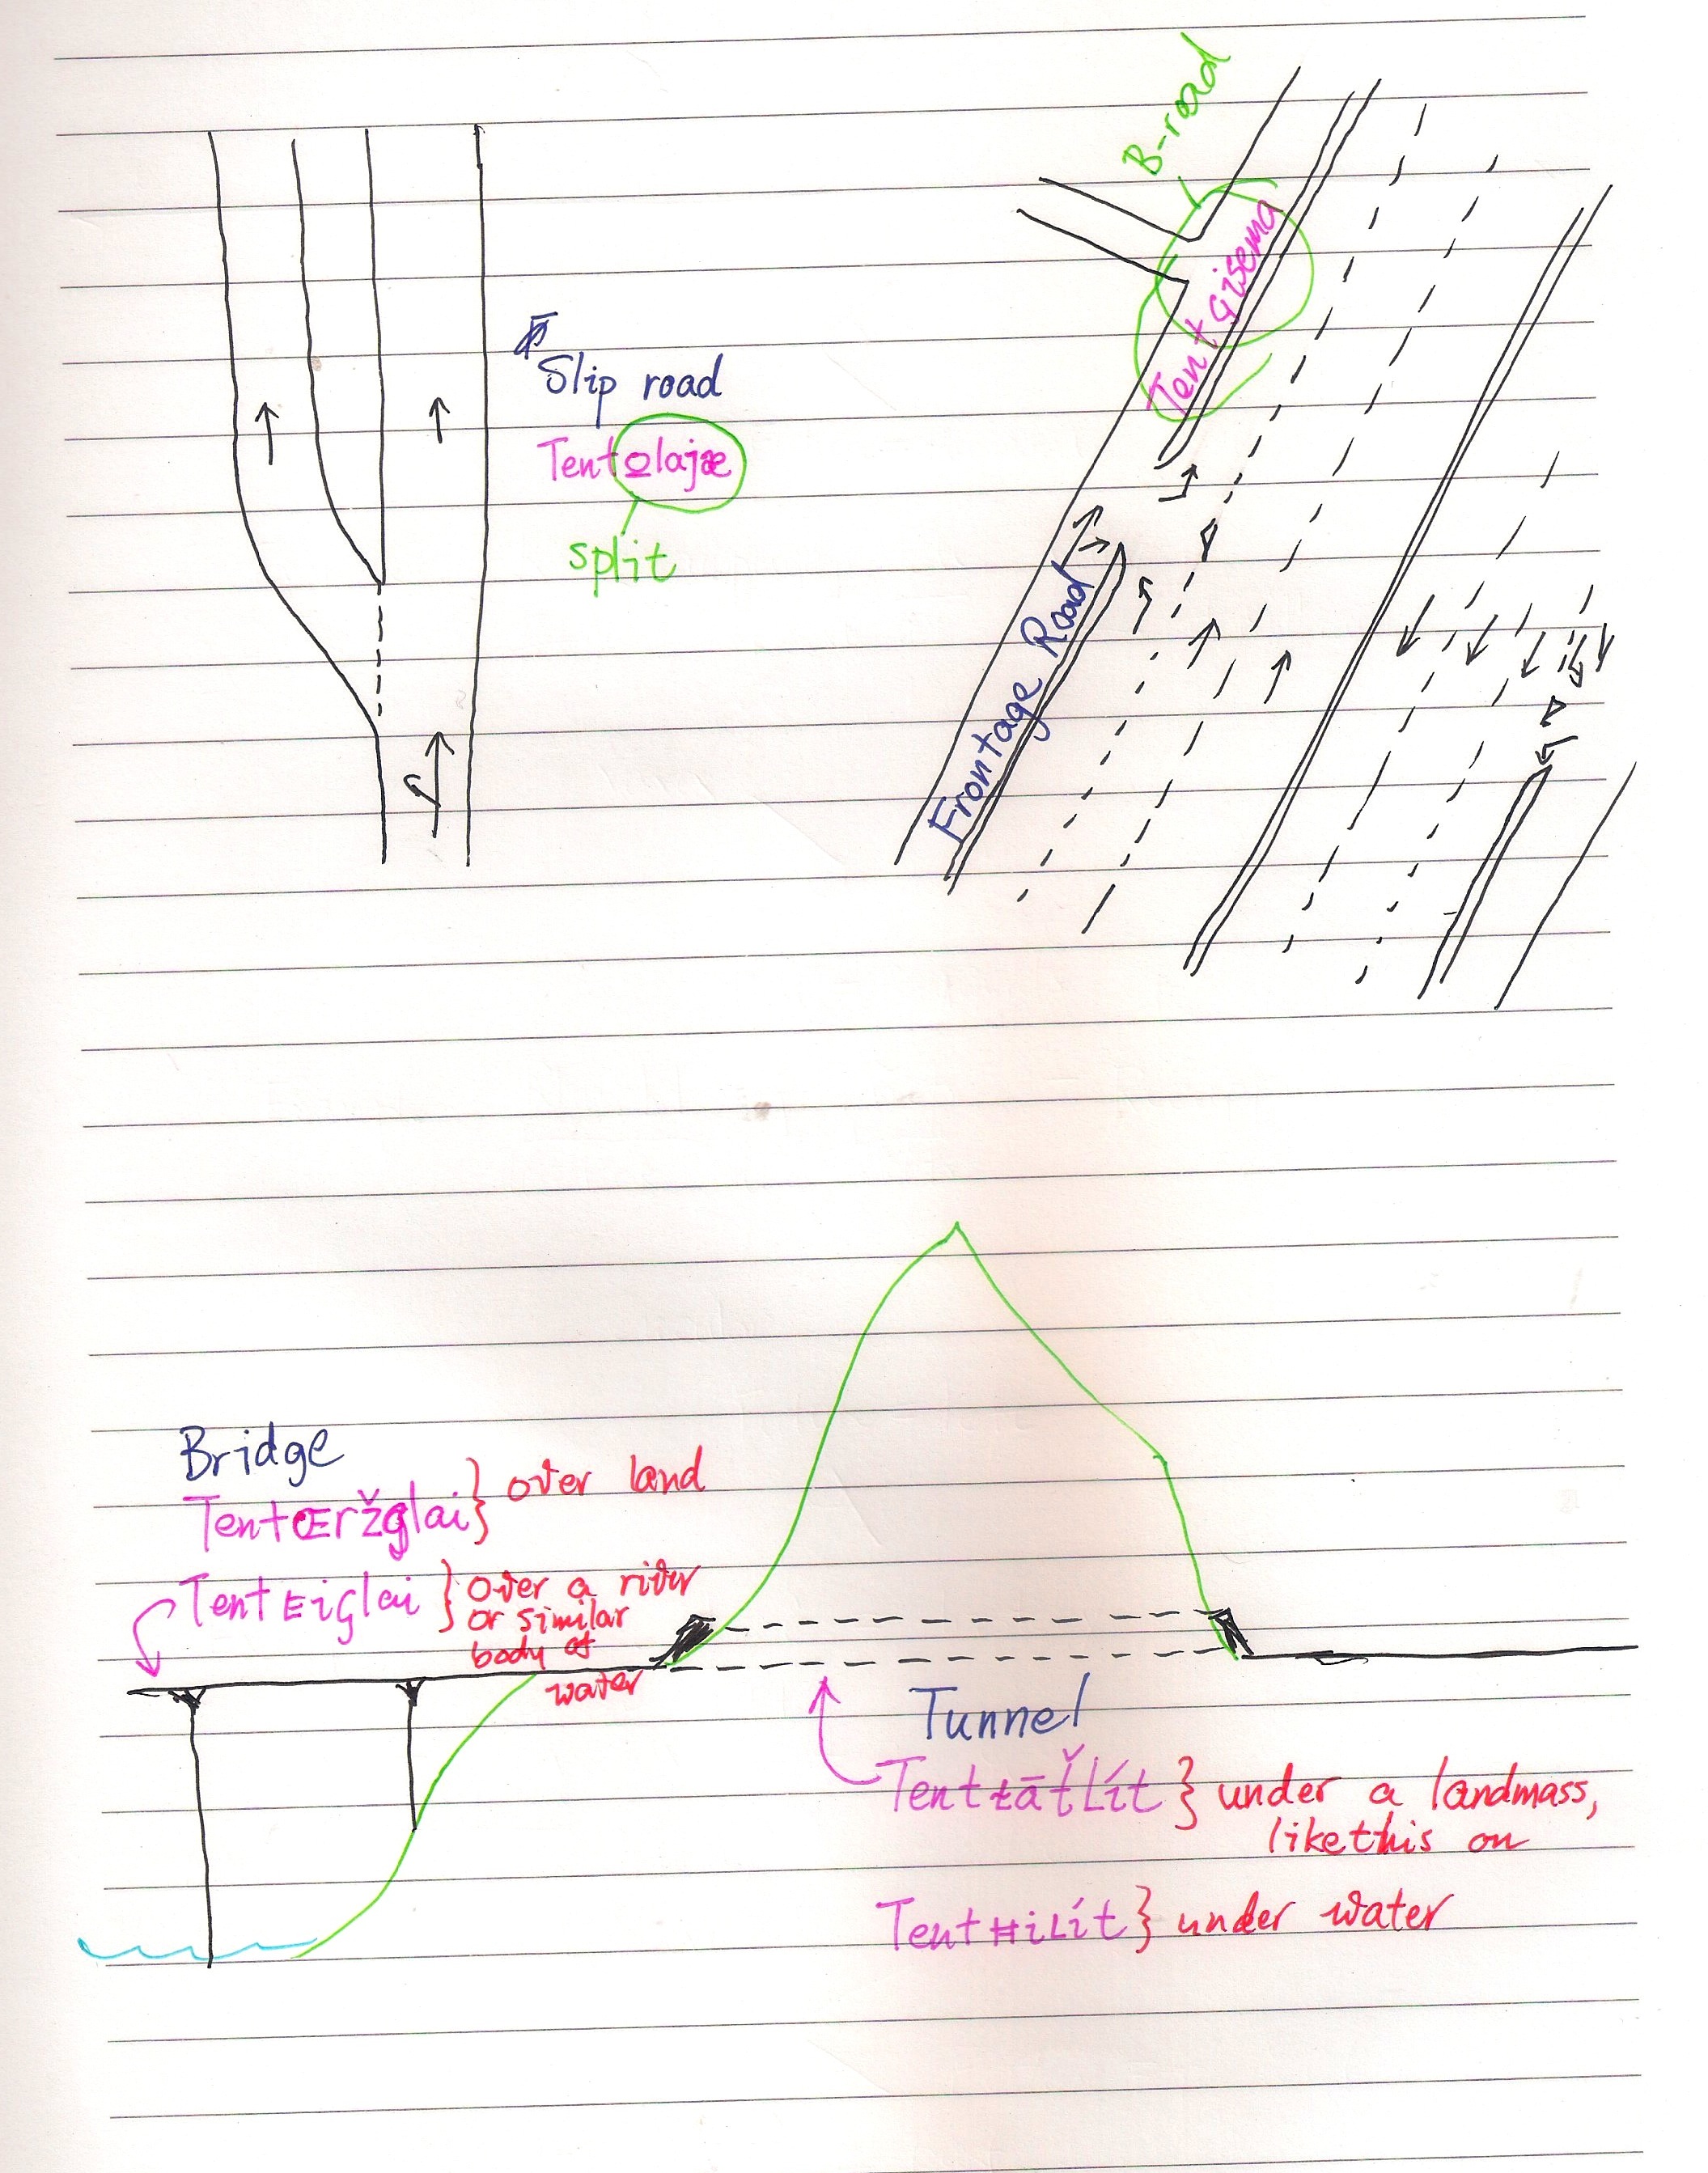 B-road
Tentgišema
Slip road
Tentolajæ
split
Frontage Road
Bridge
TentŒržglai } over land
TentEiglai } over a river
or similar
body of
water
Tunnel
TentłāťLít } under a landmass,
like this on
TentHiLít } under water